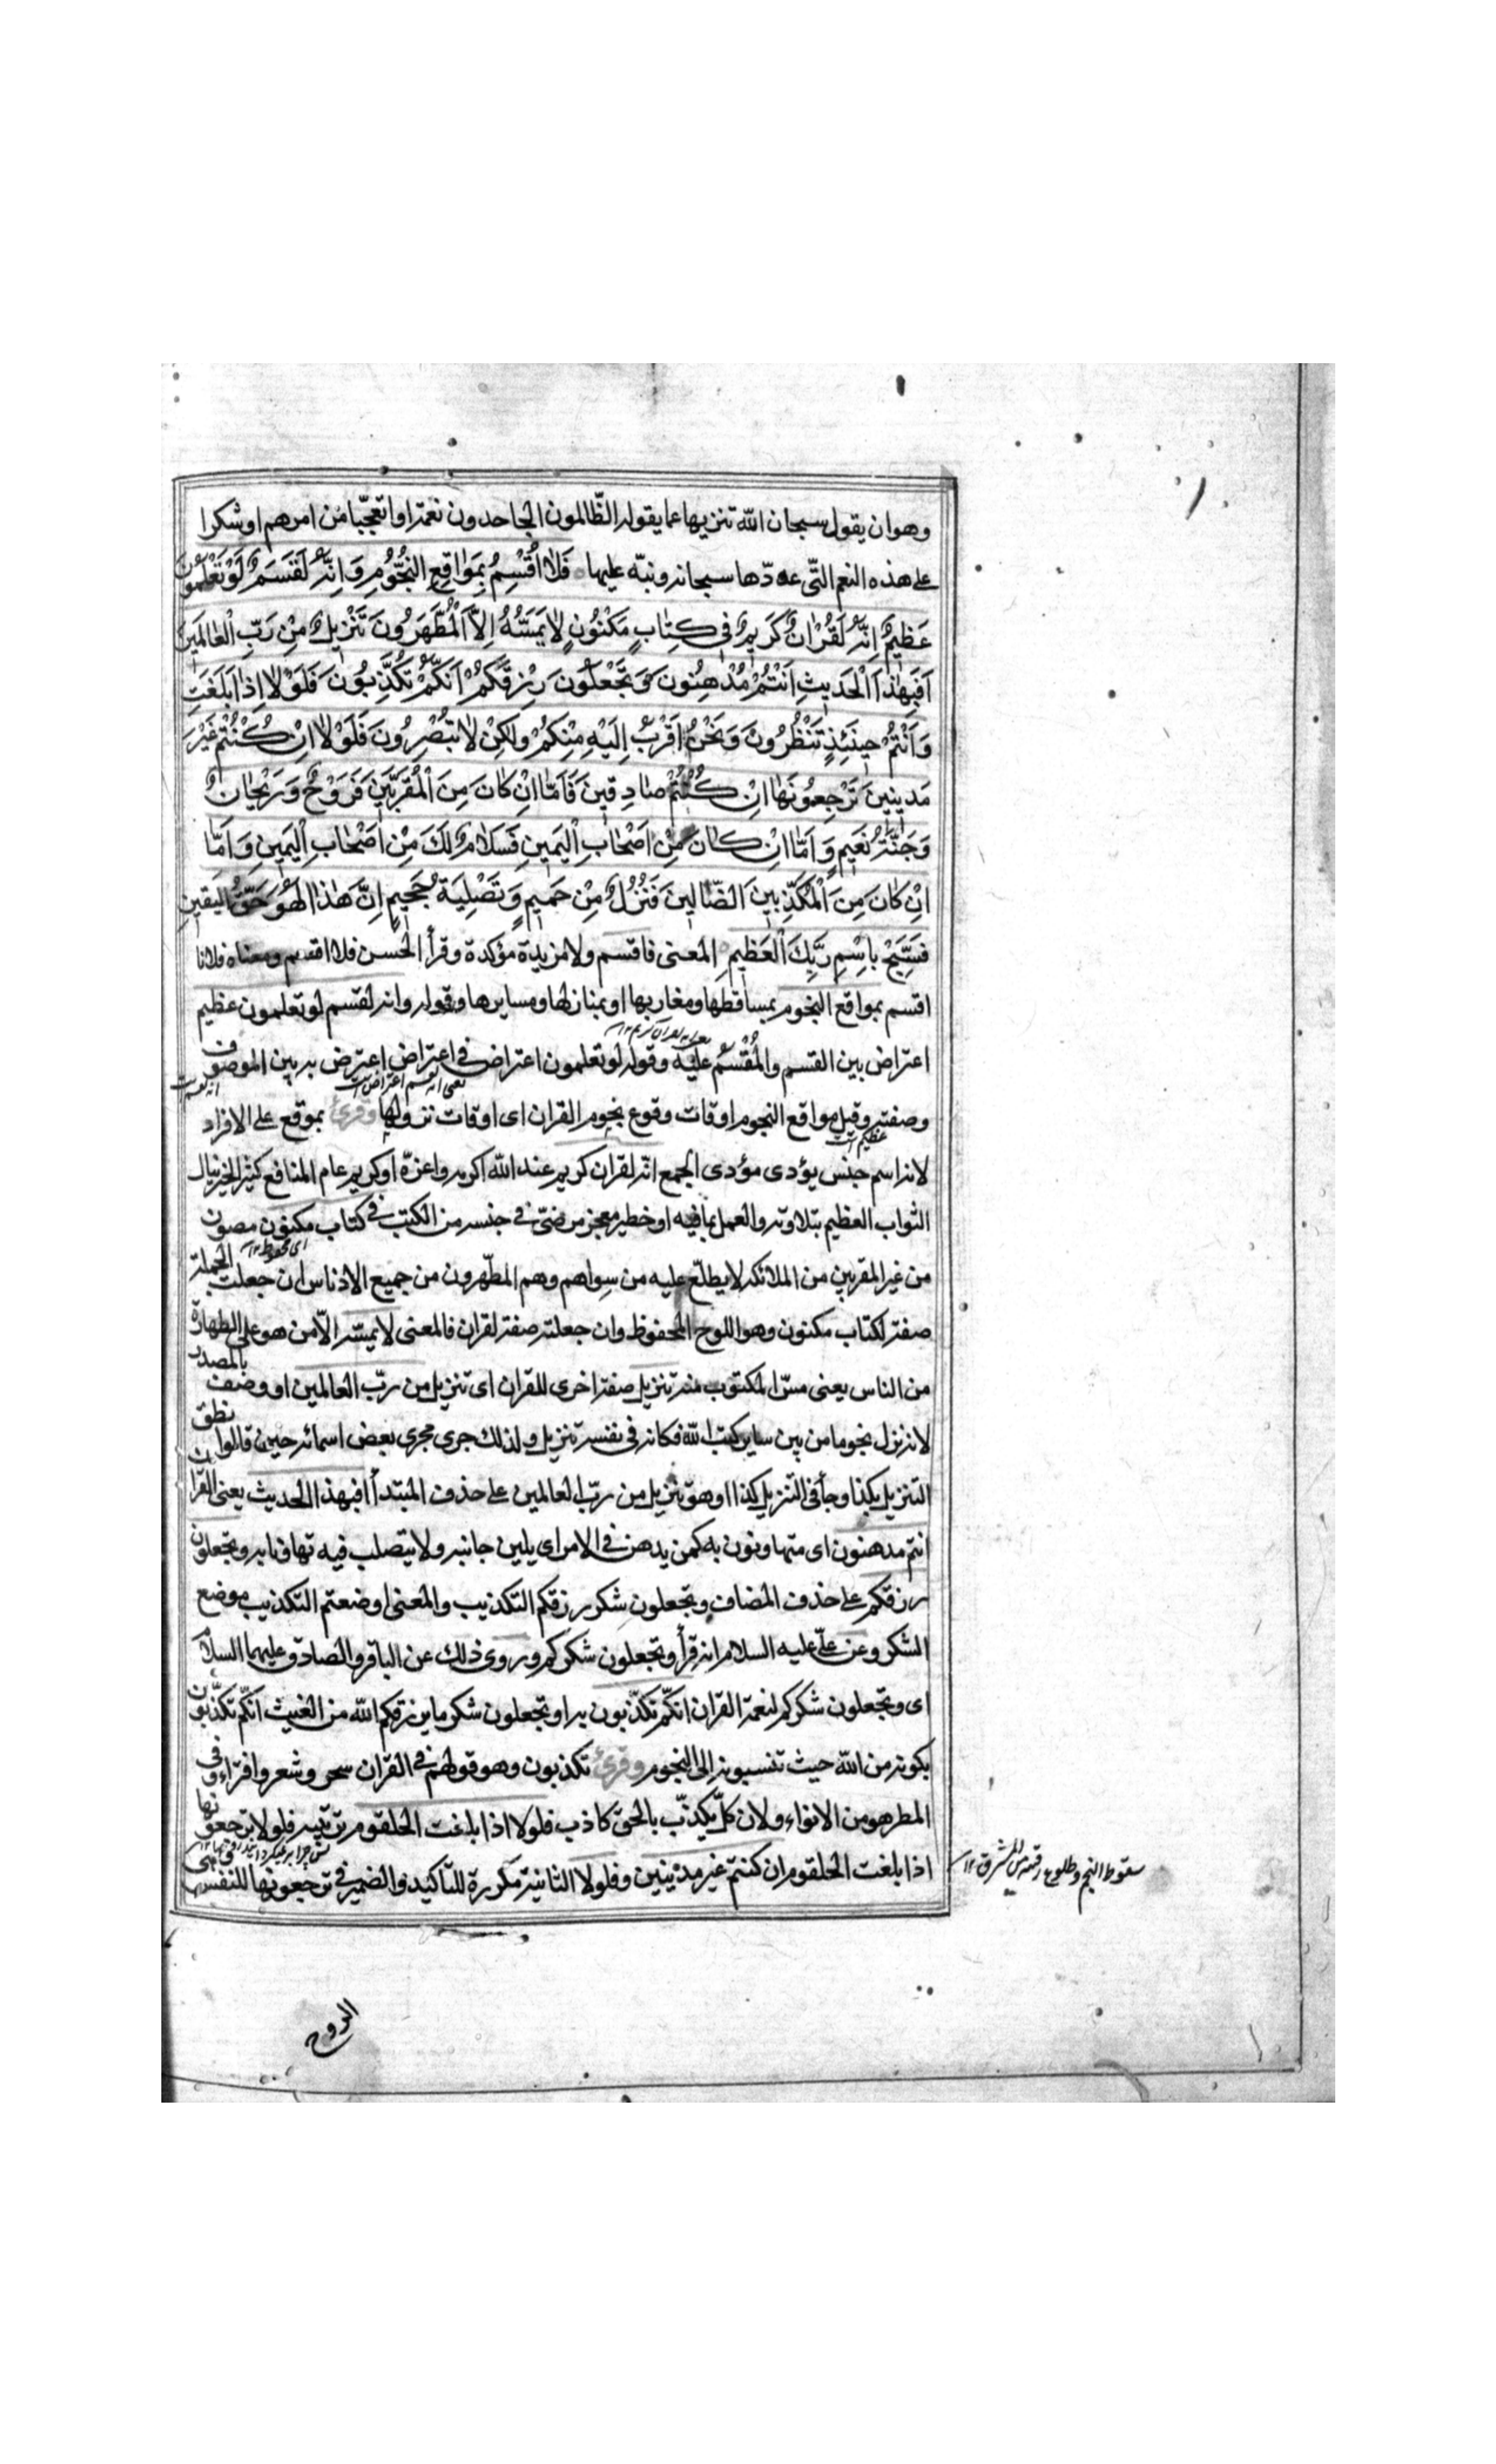 وهو ان يقول سبحان الله تنزيها عما يقوله الظّالمون الجاحدون نعمته او تعجّبا من امرهم او شكرا
على هذه النعم التّى عدّدها سبحانه ونبّه عليها فَلٰا اُقْسِمُ بِمَوٰاقِعِ النُّجُومِ وَاِنَّهُ لَقَسَمٌ لَوْ تَعْلَمُونَ
عَظِيمٌ اِنَّهُ لَقُرْاٰنٌ كَرِيمٌ فِى كِتٰابٍ مَكْنُونٍ لٰا يَمَسُّهُ اِلَّا الْمُطَهَّرُونَ تَنْزِيلٌ مِنْ رَبِّ الْعٰالَمِينَ
اَفَبِهٰذَا الْحَدِيثِ اَنْتُمْ مُدْهِنُونَ وَتَجْعَلُونَ رِزْقَكُمْ اَنَّكُمْ تُكَذِّبُونَ فَلَوْلٰا اِذٰا بَلَغَتِ
وَاَنْتُمْ حِينَئِذٍ تَنْظُرُونَ وَنَحْنُ اَقْرَبُ اِلَيْهِ مِنْكُمْ وَلٰكِنْ لٰا تُبْصِرُونَ فَلَوْلٰا اِنْ كُنْتُمْ غَيْرَ
مَدِينِينَ تَرْجِعُونَهٰا اِنْ كُنْتُمْ صٰادِقِينَ فَاَمّٰا اِنْ كٰانَ مِنَ الْمُقَرَّبِينَ فَرَوْحٌ وَرَيْحٰانٌ
وَجَنَّةُ نَعِيمٍ وَاَمّٰا اِنْ كٰانَ مِنْ اَصْحٰابِ الْيَمِينِ فَسَلٰامٌ لَكَ مِنْ اَصْحٰابِ الْيَمِينِ وَاَمّٰا
اِنْ كٰانَ مِنَ الْمُكَذِّبِينَ الضّٰالِّينَ فَنُزُلٌ مِنْ حَمِيمٍ وَتَصْلِيَةُ جَحِيمٍ اِنَّ هٰذٰا لَهُوَ حَقُّ الْيَقِينِ
فَسَبِّحْ بِاسْمِ رَبِّكَ الْعَظِيمِ المعنى فاقسم ولا مزيدة مؤكدة وقرأ الحسن فلا اقسم ومعناه فلانا
اقسم بمواقع النجوم بمساقطها ومغاربها او بمنازلها ومسايرها وقوله وانه لقسم لو تعلمون عظيم
اعتراض بين القسم والمُقْسَم عليه وقوله لو تعلمون اعتراض فى اعتراض اعترض به بين الموصوف
وصفته وقيل مواقع النجوم اوقات وقوع نجوم القران اى اوقات نزولها وقرئ بموقع على الافراد
لانه اسم جنس يؤدى مؤدى الجمع انّه لقران كريم عند الله اكرمه واعزّه او كريم عام المنافع كثير الخير ينال
الثواب العظيم بتلاوته والعمل بما فيه او خطير معجز مرضىّ فى جنسه من الكتب فى كتاب مكنون مصون
اى محفوظ ١٢
من غير المقربين من الملائكه لا يطلع عليه من سواهم وهم المطّهرون من جميع الادناس ان جعلت الجملة
صفة لكتاب مكنون وهو اللوح المحفوظ وان جعلته صفة لقران فالمعنى لا يمسّه الّا من هو على الطهارة
من الناس يعنى مسّ المكتوب منه تنزيل صفة اخرى للقران اى تنزيل من ربّ العالمين او وصف بالمصدر
لانه نزل نجوما من بين ساير كتب الله فكانه فى نفسه تنزيل ولذلك جرى مجرى بعض اسمائه حين قالوا نطق
التنزيل بكذا وجأ فى التنزيل كذا او هو تنزيل من ربّ العالمين على حذف المبتدأ افبهذا الحديث يعنى القرآن
انتم مدهنون اى متهاونون به كمن يدهن فى الامر اى يلين جانبه ولا يتصلب فيه تهاونا به وتجعلون
رزقكم على حذف المضاف وتجعلون شكر رزقكم التكذيب والمعنى اوضعتم التكذيب موضع
الشكر وعن علىّ عليه السلام انه قرأ وتجعلون شكركم وروى ذلك عن الباقر والصادق عليهما السلام
اى وتجعلون شكركم لنعمة القران انكّم تكذّبون به او تجعلون شكر ما يرزقكم الله من الغيث انكّم تكذّبون
بكونه من الله حيث تنسبونه الى النجوم وقرئ تكذبون وهو قولهم فى القران سحر وشعر وافتراء وفى
المطر هو من الانواء ولان كلّ يكذّب بالحق كاذب فلولا اذا بلغت الحلقوم ترتيبه فلولا ترجعونها
اذا بلغت الحلقوم ان كنتم غير مدينين وفلولا الثانية مكررة للتأكيد والضمير فى ترجعونها للنفس وهى
سقوط النجم وطلوع رقيبه من المشرق ١٢
الروح